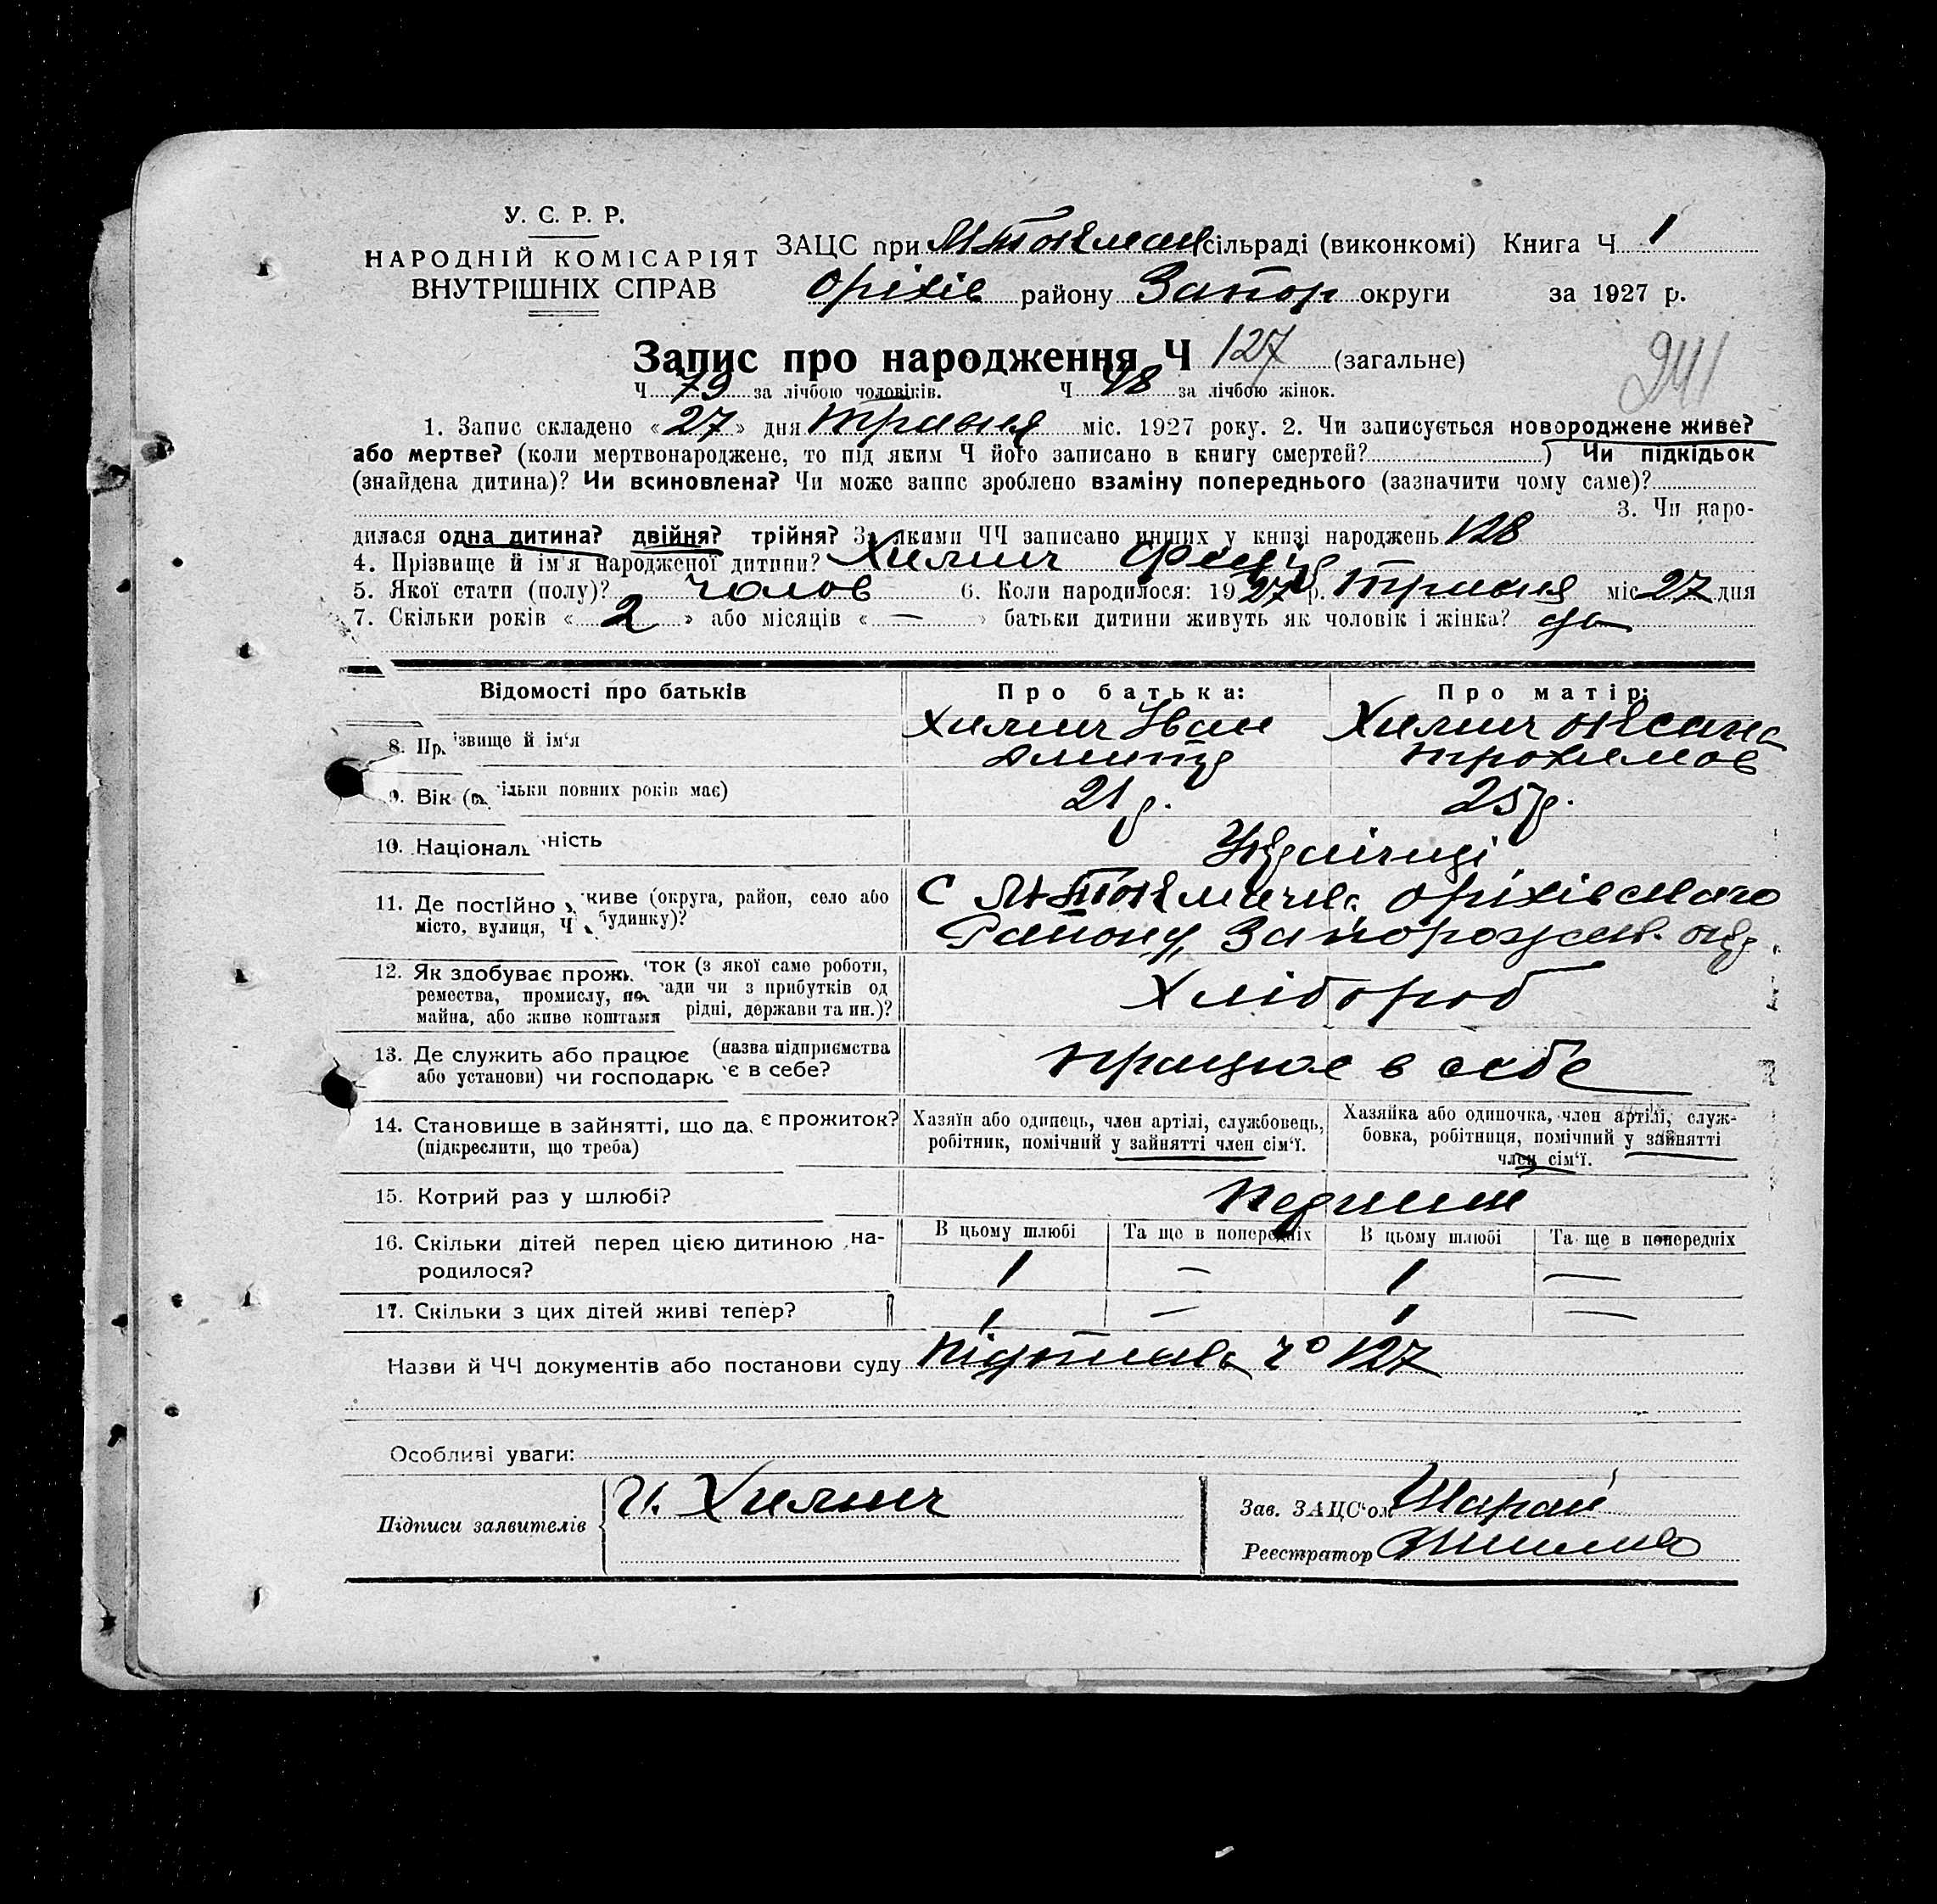 У. С. Р. Р.
НАРОДНІЙ КОМІСАРІЯТ
ВНУТРІШНІХ СПРАВ
ЗАЦС при М Токмач сільраді (виконкомі) Книга Ч 1
Оріхів району Запор округи за 1927 р.
Запис про народження Ч 127 (загальне)
241
Ч 79 за лічбою чоловіків. Ч 48 за лічбою жінок.
1. Запис складено «27» дня травня міс. 1927 року. 2. Чи записується новороджене живе?
або мертве? (коли мертвонароджене, то під яким Ч його записано в книгу смертей? ) Чи підкідьок
(знайдена дитина)? Чи всиновлена? Чи може запис зроблено взаміну попереднього (зазначити чому саме)?
3. Чи наро-
дилася одна дитина? двійня? трійня? За якими ЧЧ записано инших у книзі народжень 128
4. Прізвище й ім'я народженої дитини? Хилич
5. Якої стати (полу)? чолов 6. Коли народилося: 1927 р. травня міс 27 дня
7. Скільки років «2» або місяців «—» батьки дитини живуть як чоловік і жінка?
Відомості про батьків Про батька: Про матір:
8. Прізвище й ім'я Хилич Іван Дмитр Хилич Оксана Трохимов
9. Вік (скільки повних років має) 21 р. 25 р.
10. Національність Українці
11. Де постійно живе (округа, район, село або
місто, вулиця, Ч будинку)?
С М Токмачка Оріхівського
Району, Запорожськ. окр
12. Як здобуває прожиток (з якої саме роботи,
ремества, промислу, посади чи з прибутків од
майна, або живе коштами рідні, держави та ин.)?
Хлібороб
13. Де служить або працює (назва підприємства
або установи) чи господарює в себе?
працює в себе
14. Становище в зайнятті, що дає прожиток?
(підкреслити, що треба)
Хазяїн або одинець, член артілі, службовець,
робітник, помічний у зайнятті член сім'ї.
Хазяйка або одиночка, член артілі, служ-
бовка, робітниця, помічний у зайнятті
член сім'ї.
15. Котрий раз у шлюбі? Перший
16. Скільки дітей перед цією дитиною на-
родилося?
В цьому шлюбі Та ще в попередніх В цьому шлюбі Та ще в попередніх
1 — 1 —
17. Скільки з цих дітей живі тепер? 1 — 1 —
Назви й ЧЧ документів або постанови суду Підписка Ч° 127
Особливі уваги:
Підписи заявителів И. Хилич
Зав. ЗАЦС'ом Шарай
Реєстратор